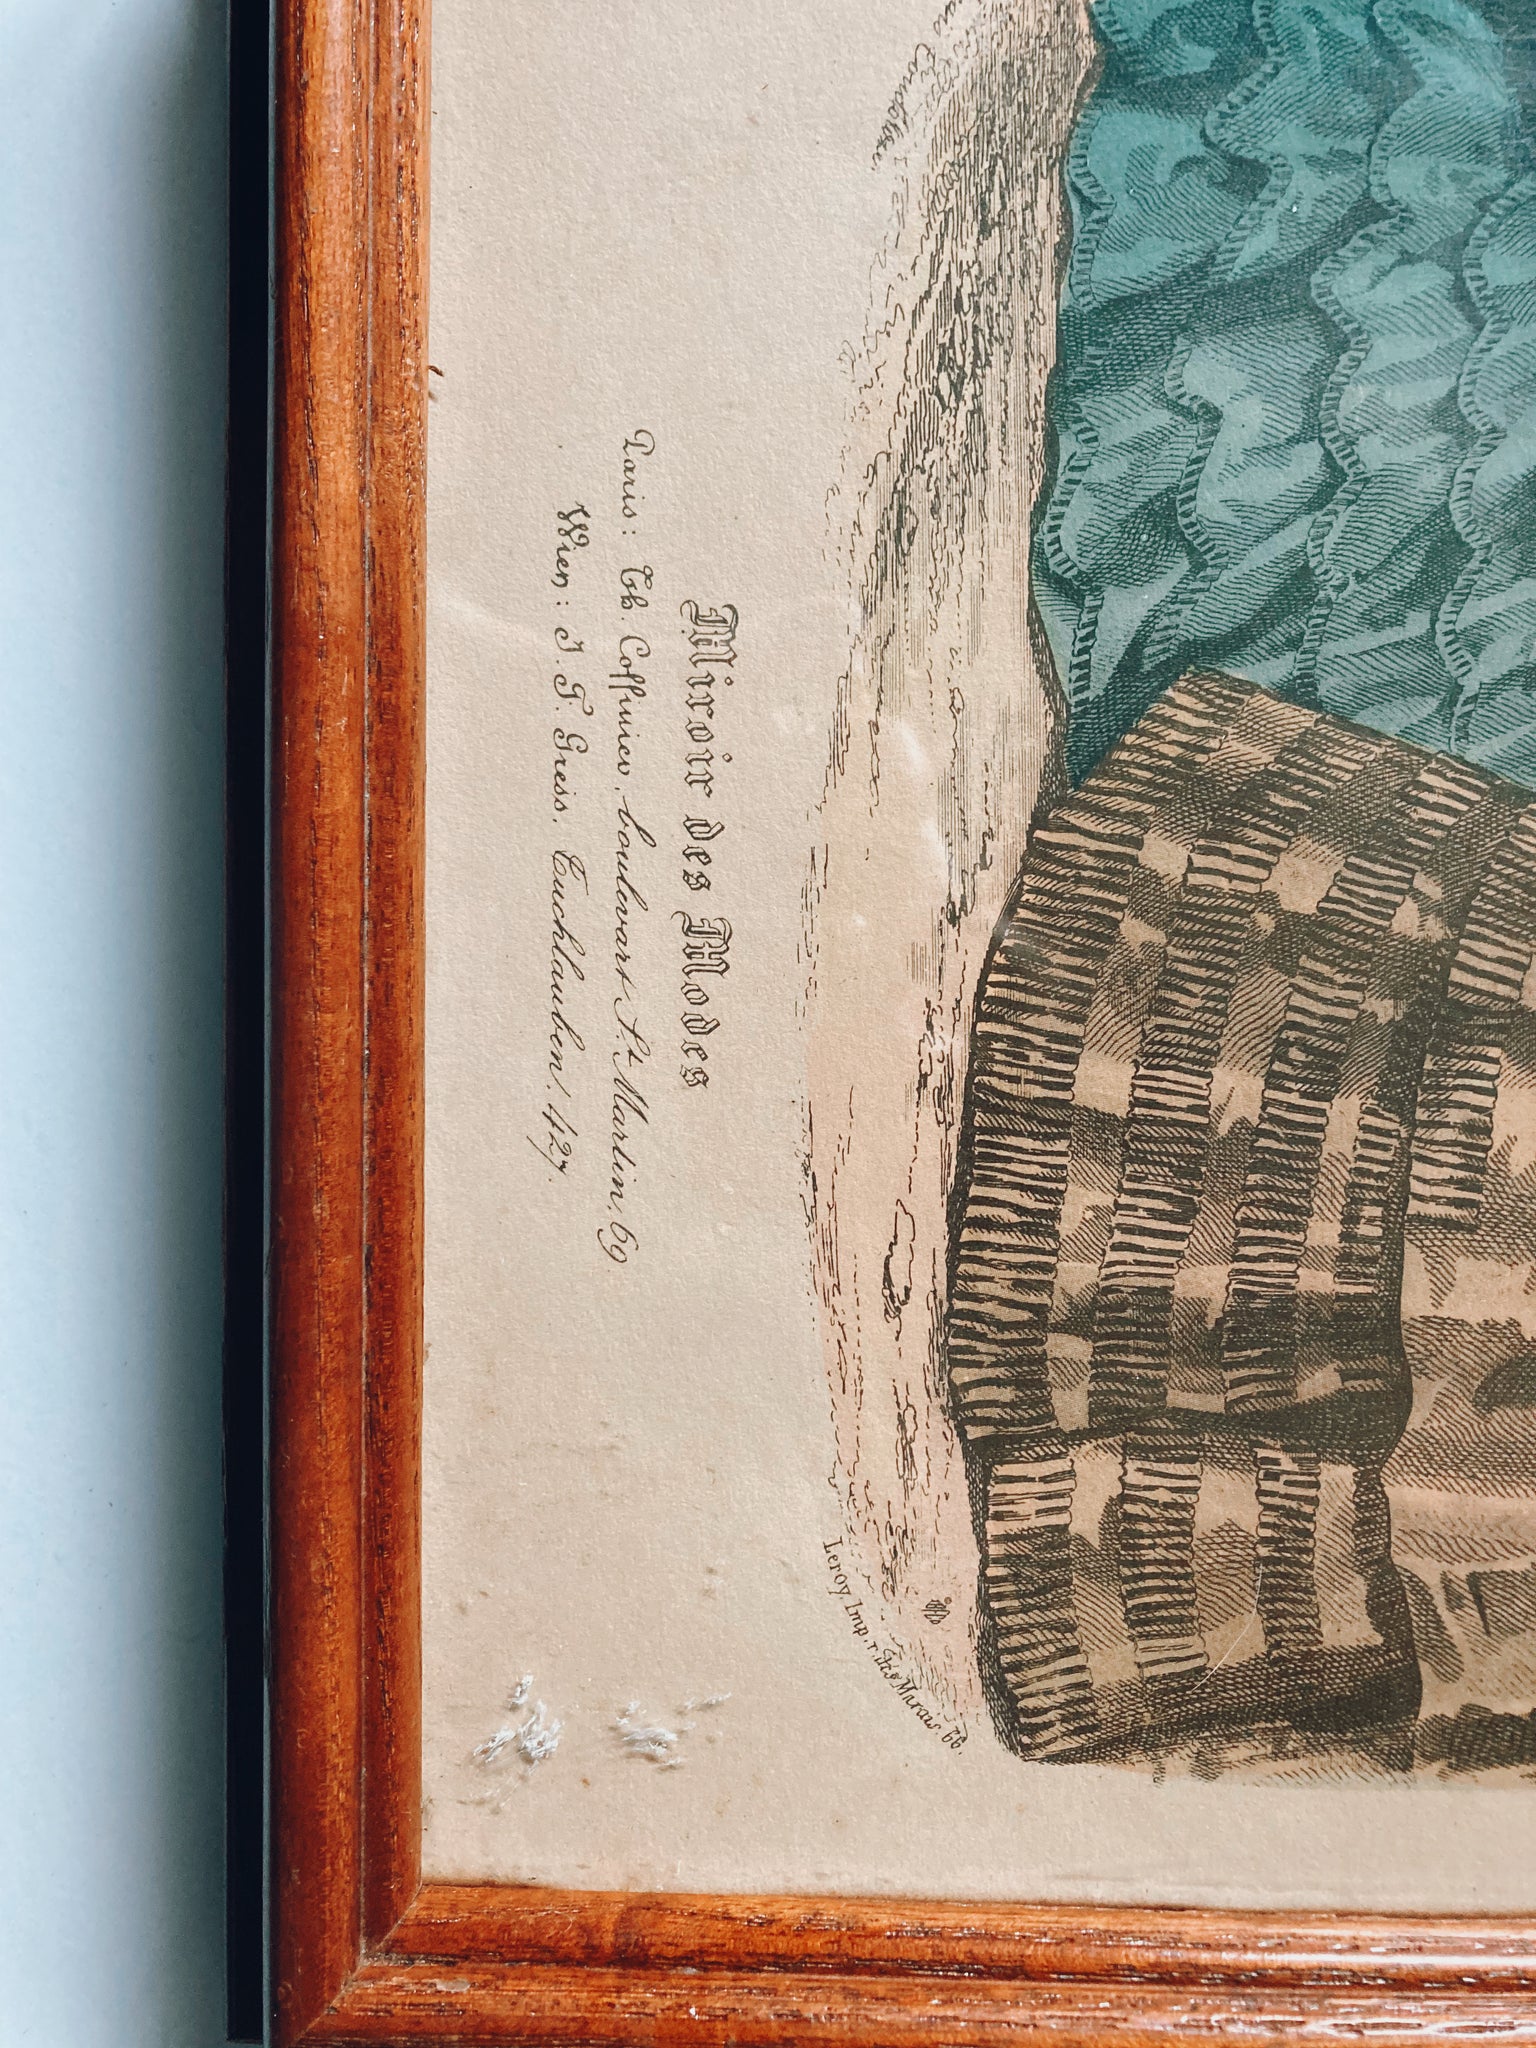 Miroir des Modes
Paris: Th. Coffinier, boulevart St. Martin. 69
Wien: J. F. Greiss. Tuchlauben. 427.
Leroy, Imp. r. des Marais. 66.